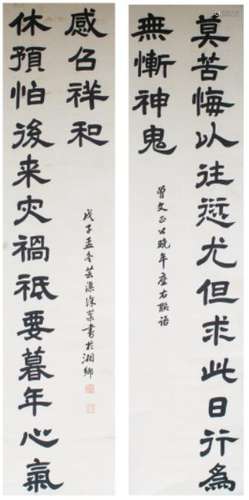 莫苦悔以往愆尤但求此日行為
無慚神鬼
曾文正公晚年座右聯語
休預怕後来灾禍祗要暮年心氣
感召祥和
戊子孟冬書於湘鄉